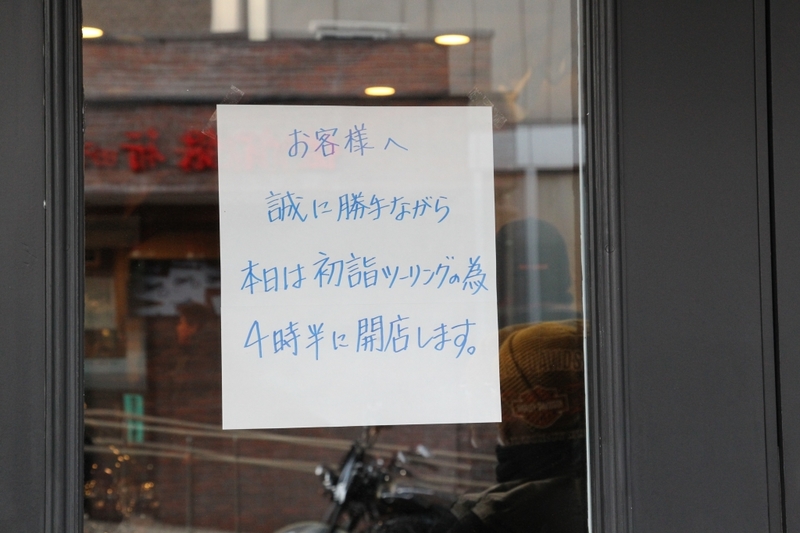 お客様へ
誠に勝手ながら
本日は初詣ツーリングの為
4時半に開店します。